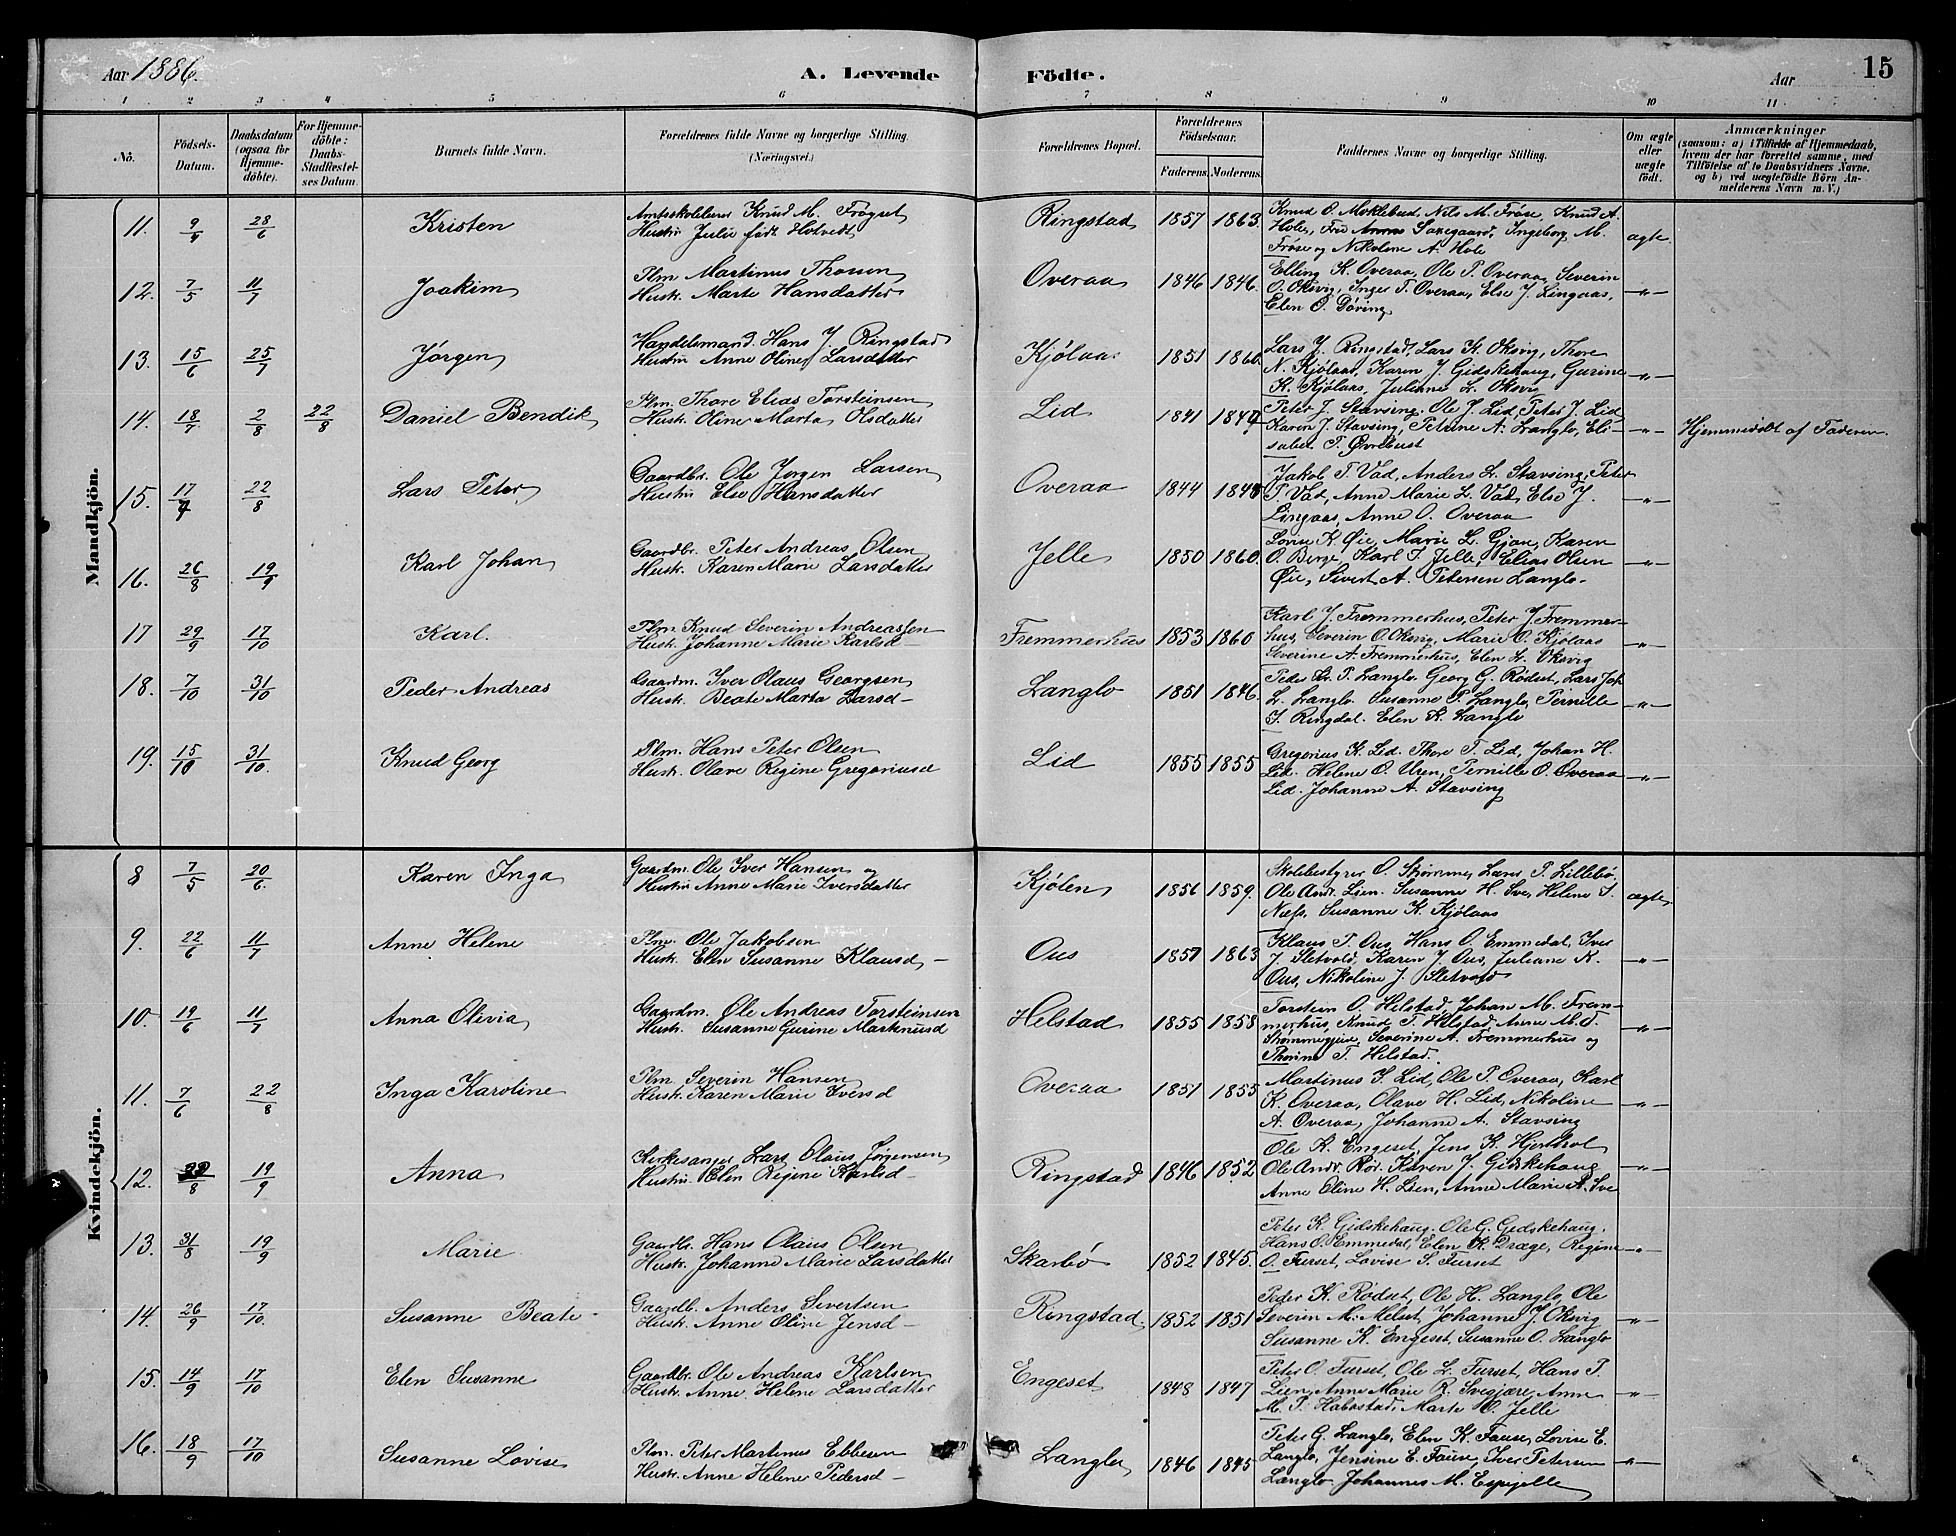 Aar 1886. A. Levende Födte. Aar 15
1 2 3 4 5 6 7 8 9 10 11
No. Födsels-Datum. Daabsdatum (ogsaa for Hjemme-döbte). For Hjemme-döbte: Daabs-Stadfæstel-ses Datum. Barnets fulde Navn. Forældrenes fulde Navne og borgerlige Stilling. (Næringsvei.) Forældrenes Bopæl. Forældrenes Födselsaar. Faderens. Moderens. Faddernes Navne og borgerlige Stilling. Om ægte eller uægte födt. Anmærkninger (saasom: a) i Tilfælde af Hjemmedaab, hvem der har forrettet samme, med Tilföielse af to Daabsvidners Navne, og b) ved uægtefödte Börn An-melderens Navn m. V.)
Mandkjön.
11. 9/4 28/6 Kristen Amtsskolelærer Knud M. Frøyset Ringstad 1857 1863. Knud O. Moklebud, Nils M. Frøse, Knud A.
Hustru Julie født Hotvedt Hole, Frø Saxegaard, Ingeborg M. ægte.
Frøse og Nikoline A. Hole
12. 7/5 11/7 Joakim Plm Martinus Thossen Overaa 1846 1846. Elling K. Overaa, Ole P. Overaa, Severin
Hustr. Marte Hansdatter O. Oksvig, Inger T. Overaa, Else J. Lingaas, -"-
Elen O. Døving
13. 15/6 25/7 Jørgen Handelsmand. Hans J. Ringstad Kjölaas 1851 1860. Lars J. Ringstad, Lars K. Oksvig, Thore
Hustru Anne Oline Larsdatter N. Kjölaas, Karen J. Gidskehaug, Gurine -"-
K. Kjölaas, Juliane L. Oksvig
14. 18/7 2/8 22/8 Daniel Bendik Plm. Thore Elias Torsteinsen Lid 1841 1847 Peter J. Stavsing. Ole J. Lid, Peter J. Lid
Hustr. Oline Marta Olsdatter Karen J. Stavsing, Petrine A. Langlo, Eli- -"- Hjemmedøbt af Faderen.
sabet P. Øvrebust
15. 17/7 22/8 Lars Peter Gaardbr. Ole Jørgen Larsen Overaa 1844 1848 Jakob P. Vad, Anders L. Stavsing, Peter
Hustru Else Hansdatter P. Vad, Anne Marie L. Vad, Else J. -"-
Lingaas, Anne O. Overaa
16. 26/8 19/9 Karl Johan Gaardbr. Peter Andreas Olsen Jelle 1850 1860. Lovise K. Øie, Marie L. Gjøn, Karen
Hustr. Karen Marie Larsdatter O. Berge, Karl J. Jelle, Elias Olsen -"-
Øie, Sivert A. Petersen Langlo-
17 29/9 17/10 Karl. Plm. Knud Severin Andreassen Fremmerhus 1853 1860 Karl J. Fremmerhus, Peter J. Fremmer-
Hustr. Johanne Marie Karlsd- hus, Severin O. Oksvig, Marie O. Kjölaas -"-
Severine A. Fremmerhus, Elen L. Oksvig
18. 7/10 31/10 Peder Andreas Gaardm. Iver Olaus Georgsen Langlo 1851 1846. Peder L. P. Langlo, Georg G. Rödset, Lars Joh
Hustr. Beate Marta Larsd- L. Langlo. Susanne P. Langlo, Pernille -"-
I. Ringdal. Elen K. Langlo
19. 15/10 31/10. Knud Georg Plm. Hans Peter Olsen Lid 1855 1855 Gregorius K. Lid. Thore T. Lid, Johan H.
Hustr. Olave Regine Gregoriusd Lid. Helene O. Uren, Pernille O. Overaa -"-
Lid. Johanne A. Stavsing
Kvindekjön.
8 7/5 20/6. Karen Inga Gaardm. Ole Iver Hansen og Kjölen 1856 1859. Skolebestyrer O. Strömme, Lars P. Lillebö,
Hustru Anne Marie Iversdatter Ole Andr. Lien. Susanne H. Sve, Helene I. ægte
Næss, Susanne K. Kjölaas
9. 22/6 11/7 Anne Helene Plm. Ole Jakobsen Ous 1857 1863 Klaus P. Ous, Hans O. Emmedal, Iver
Hustr. Elen Susanne Klausd- J. Sletvold, Karen J. Ous, Juliane K. -"-
Ous, Nikoline J. Sletvold
10. 19/6 11/7 Anna Olivia Gaardm. Ole Andreas Torsteinsen Helstad 1855 1858 Torstein O. Helstad, Johan M. Frem-
Hustr. Susanne Gurine Martinusd merhus, Knud T. Helstad, Anne M. T. -"-
Strømmegjere, Severine A. Fremmerhus og
Thorine T. Helstad.
11. 7/6 22/8 Inga Karoline Plm Severin Hansen Overaa 1851 1855 Martinus I. Lid, Ole P. Overaa, Karl
Hustr. Karen Marie Iversd K. Overaa, Olave H. Lid, Nikoline -"-
A. Overaa, Johanne A. Stavsing
12. 22/8 19/9 Anna Kirkesanger Lars Olaus Jørgensen Ringstad 1846 1852 Ole K. Engeset, Jens K. Hjorthol
Hustru Elen Regine Karlsd- Ole Andr. Rör. Karen J. Gidskehaug -"-
Anne Oline H. Lien, Anne Marie A. Sve
13. 31/8 19/9 Marie Gaardbr. Hans Olaus Olsen Skarbö 1852 1845. Peter K. Gidskehaug. Ole G. Gidskehaug.
Hustr. Johanne Marie Larsdatter Hans O. Emmedal, Elen K. Dræge, Regine -"-
O. Furset, Lovise S. Furset
14. 26/9 17/10. Susanne Beate- Gaardbr. Anders Sivertsen Ringstad. 1852 1851 Peder K. Rödset, Ole H. Langlo, Ole
Hustr. Anne Oline Jensd- Severin M. Melset, Johanne J. Oksvig -"-
Susanne K. Engeset, Susanne O. Langlo
15. 14/9 17/10 Elen Susanne Gaardbr. Ole Andreas Karlsen Engeset 1848 1847 Peter O. Furset, Ole L. Furset, Hans P.
Hustr. Anne Helene Larsdatter Lien, Anne Marie R. Svegjære, Anne -"-
M. P. Habostad, Marte O. Jelle
16. 18/9 17/10 Susanne Lovise Plm. Peter Martinus Ebbesen Langlo 1846 1845 Peter G. Langlo, Elen K. Fause, Lovise E.
Hustr. Anne Helene Pedersd- Langlo, Jensine E. Fause, Iver Petersen -"-
Langlo Johannes M. Espejelle